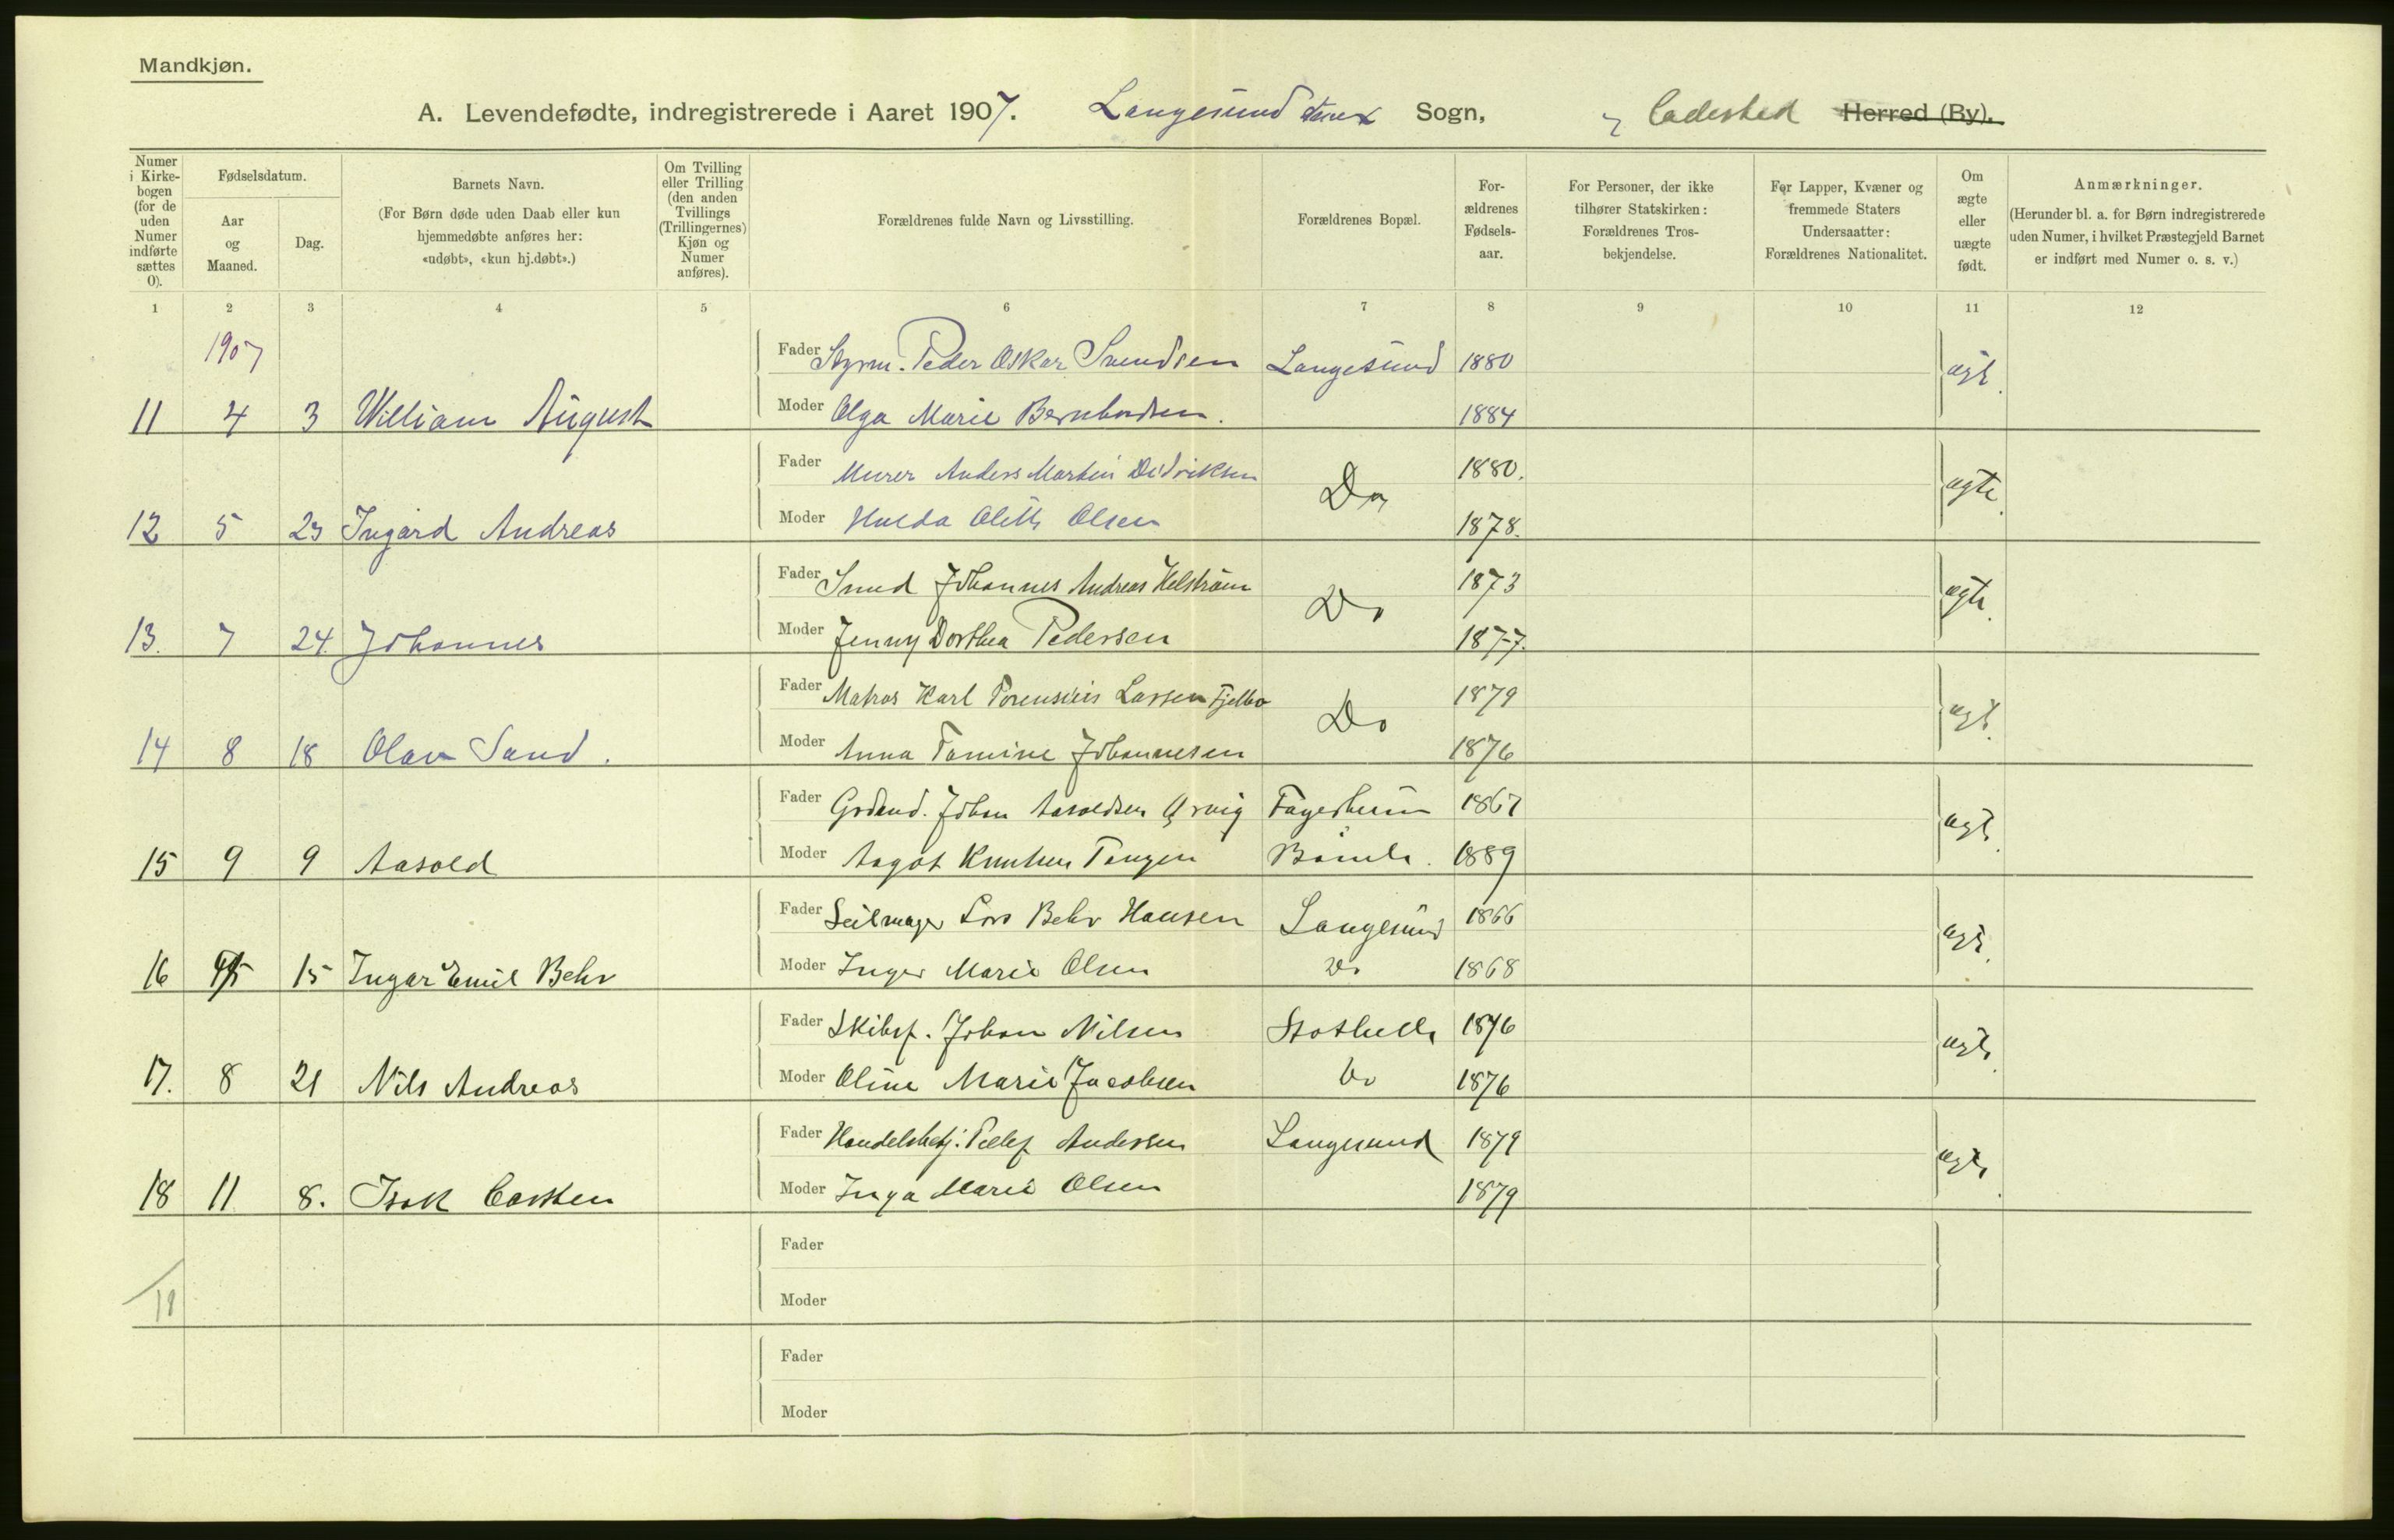 Mandkjøn.
A. Levendefødte, indregistrerede i Aaret 1907. Langesund Sogn, Ladested Herred (By).
Numer i Kirke-bogen (for de uden Numer indførte sættes 0).
Fødselsdatum.
Aar og Maaned.
Dag.
Barnets Navn.
(For Børn døde uden Daab eller kun hjemmedøbte anføres her: «udøbt», «kun hj.døbt».)
Om Tvilling eller Trilling (den anden Tvillings (Trillingernes) Kjøn og Numer anføres).
Forældrenes fulde Navn og Livsstilling.
Forældrenes Bopæl.
For-ældrenes Fødsels-aar.
For Personer, der ikke tilhører Statskirken: Forældrenes Tros-bekjendelse.
For Lapper, Kvæner og fremmede Staters Undersaatter: Forældrenes Nationalitet.
Om ægte eller uægte født.
Anmærkninger.
(Herunder bl. a. for Børn indregistrerede uden Numer, i hvilket Præstegjeld Barnet er indført med Numer o. s. v.)
1 2 3 4 5 6 7 8 9 10 11 12
1907
Fader Styrm. Peder Oskar Svendsen Langesund 1880 ægt.
11 4 3 William August Moder Olga Marie Bernhardsen. 1884
Fader Murer Anders Martin Didriksen Do 1880. ægte
12 5 23 Ingard Andreas Moder Hulda Olette Olsen 1878.
Fader Smed Johannes Andreas Helström Do 1873 ægte.
13. 7 24. Johannes Moder Jenny Dorthea Pedersen 1877.
Fader Matros Karl Larsen Fjelbo Do 1879 ægt.
14 8 18 Olav Sand. Moder Anna Tomine Johannesen 1876
Fader Johan Aasoldsen Fagerheim 1867 ægt.
15 9 9 Aasold Moder Aagot Knutsen Tangen Bamle. 1889
Fader Seilmager Lars Behr Hansen Langesund 1866 ægt.
16 15 Ingar Emil Behr Moder Inger Marie Olsen Do 1868
Fader Skibsf. Johan Nilsen Stathelle 1876 ægt.
17. 8 21 Nils Andreas Moder Oline Marie Jacobsen Do 1876
Fader Handelsbetj. Tellef Andersen Langesund 1879 ægt.
18 11 8. Isak Carsten Moder Inga Marie Olsen 1879
Fader
18
Moder
Fader
Moder